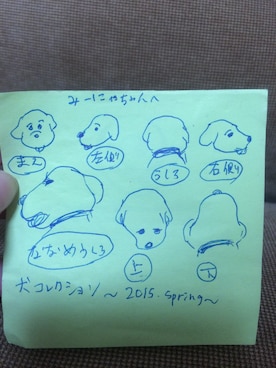 みーにゃちゃんへ
まえ
左側
うしろ
右側
ななめうしろ
上
下
犬コレクション〜2015.spring〜